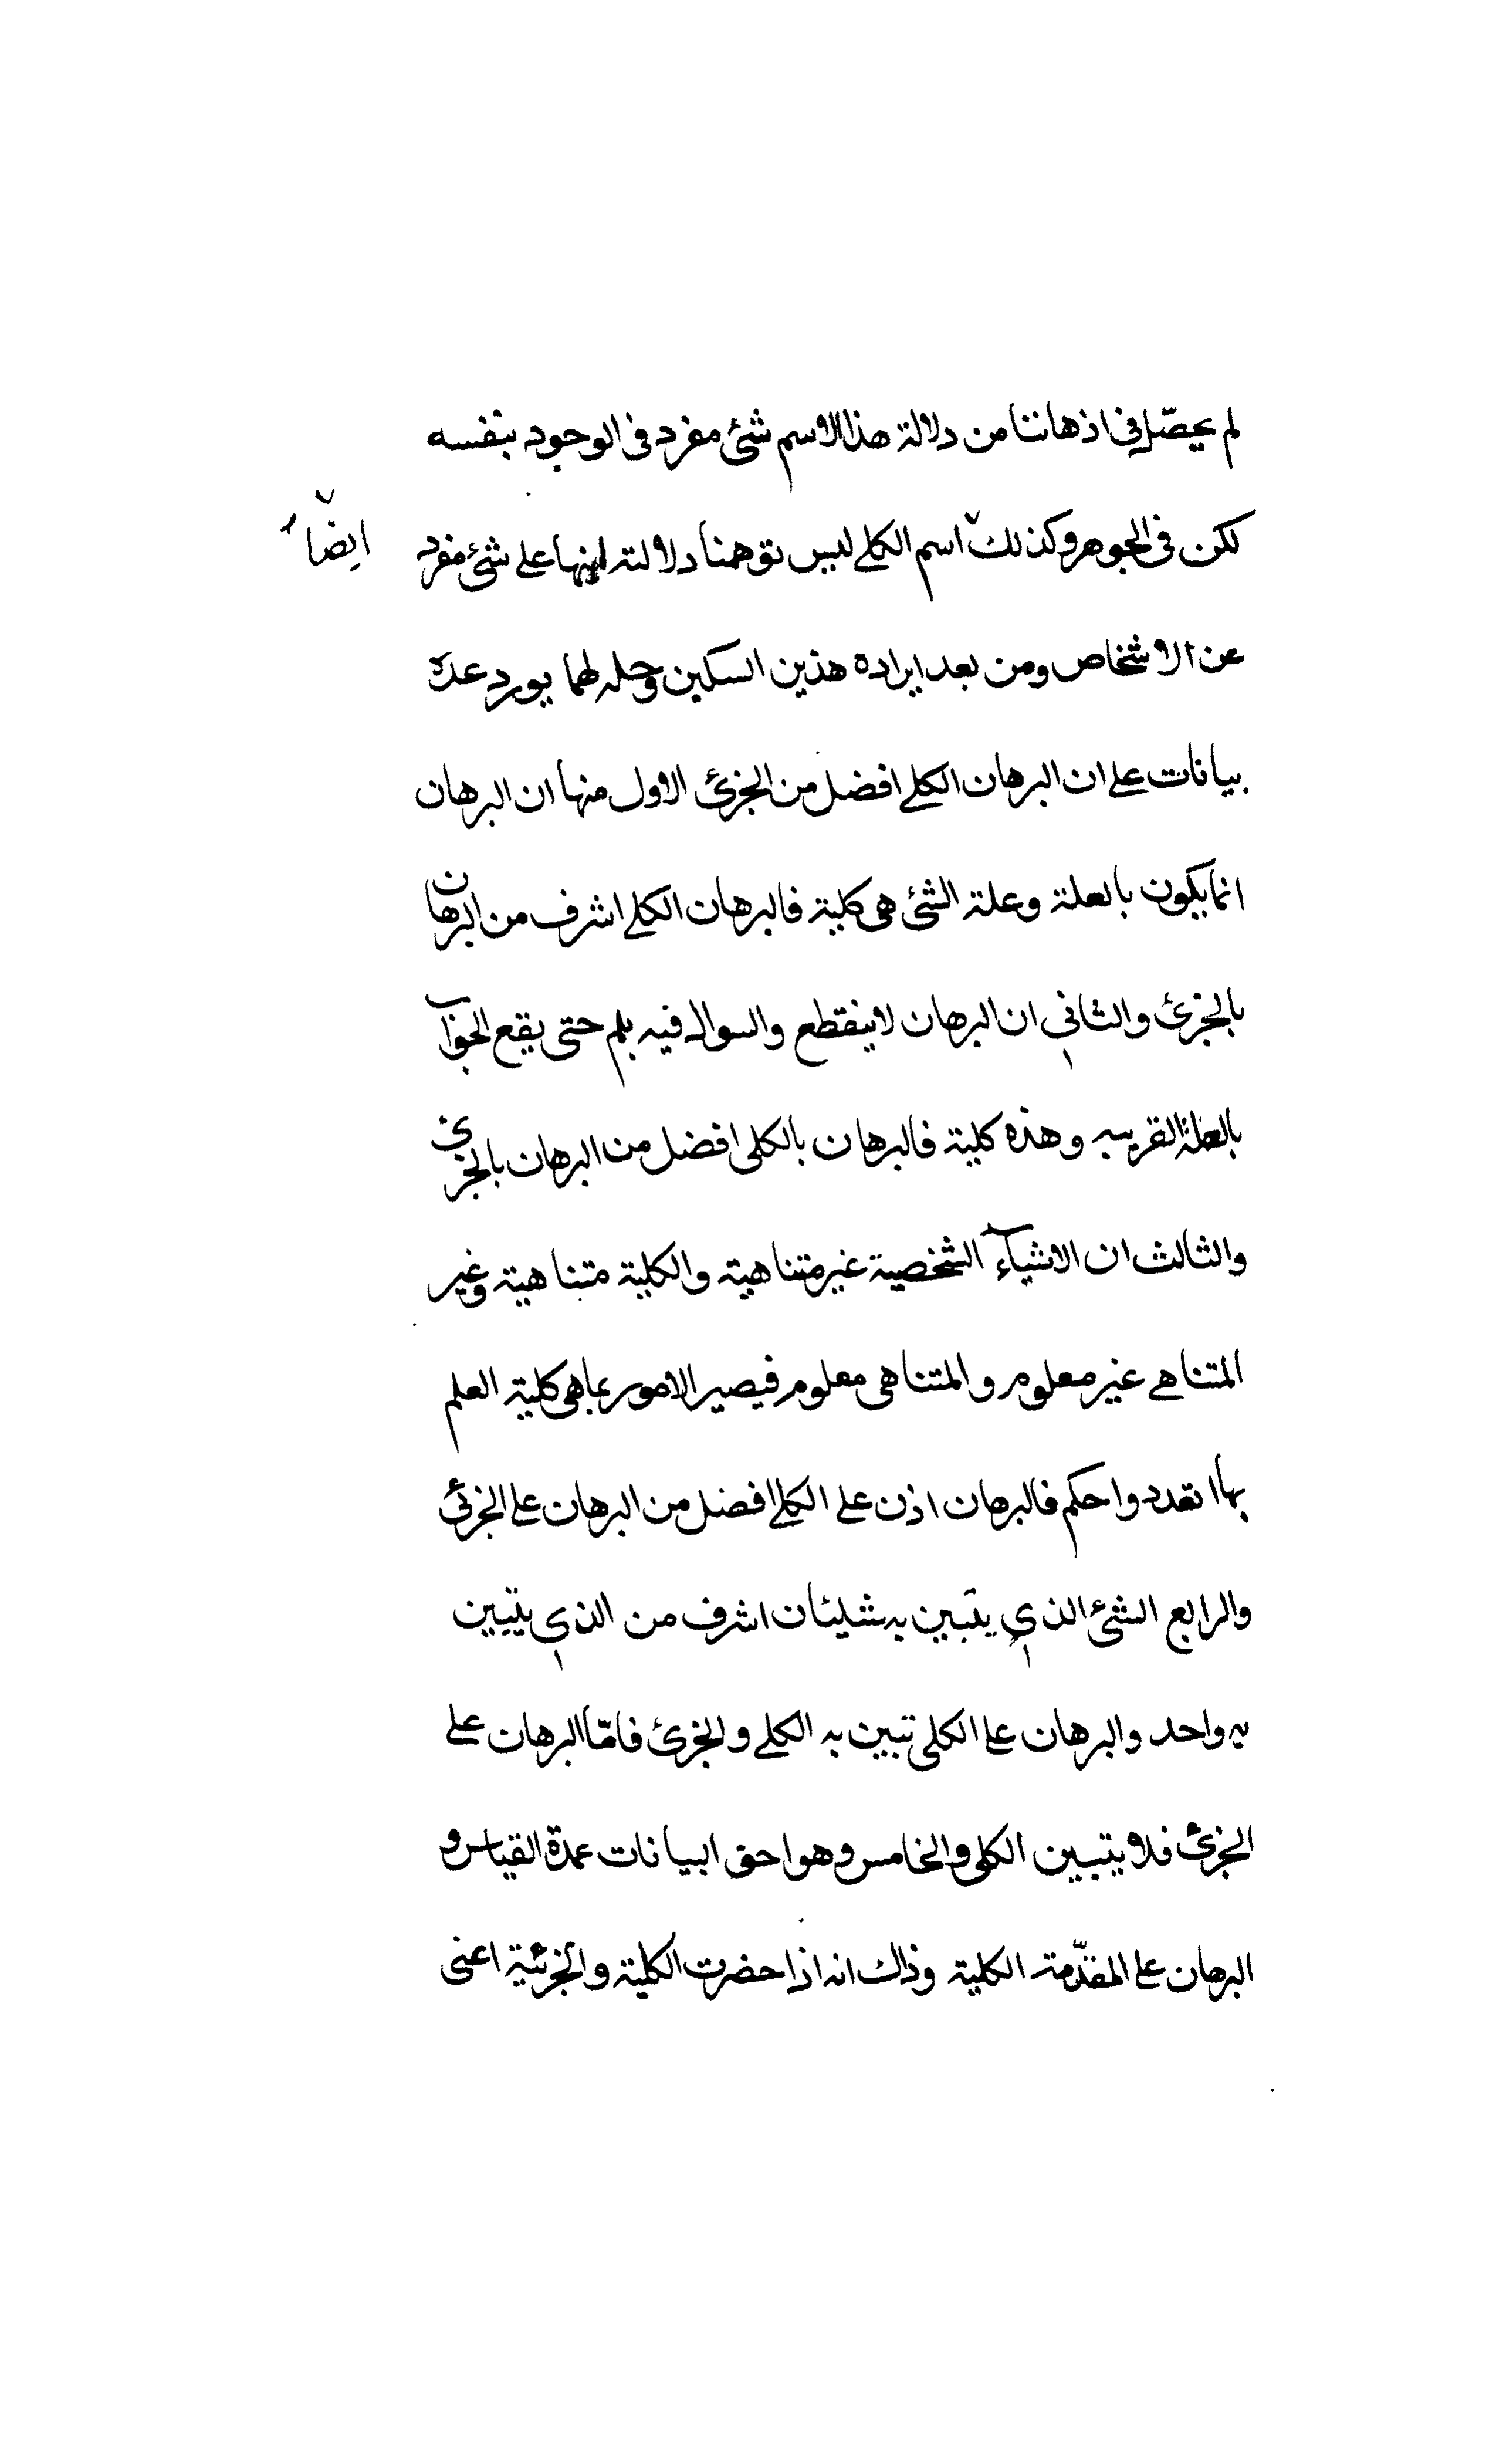 لم يحصّل في اذهاننا من دلالة هذا الاسم شئ مفرد فى الوجود بنفسه
لكن فى الجوهر وكذلك اسم الكلے ليس توهمنا دلالته على شئ مفرد
ايضاً
عن الاشخاص ومن بعد ايراده هذين السكين وحله لهما يورد عدة
بيانات على ان البرهان الكلے افضل من الجزئ الاول منها ان البرهان
انما يكون بالعلة وعلة الشئ هى كلية فالبرهان الكلے اشرف من البرهان
بالجزئ والثانى ان البرهان لا ينقطع والسوال فيه بلم حتى يقع الجواب
بالعلة القريبه وهذه كلية فالبرهان بالكلى افضل من البرهان بالجزئ
والثالث ان الاشياء الشخصية غير متناهية والكلية متناهية وغير
المتناهے غير معلوم والمتناهى معلوم فيصير الامور بما هى كلية العلم
بها واحكم فالبرهان اذن على الكلے افضل من البرهان على الجزئ
والرابع الشئ الذى يتبين به شيئان اشرف من الذى يتبين
به واحد والبرهان على الكلى تبين به الكلے والجزئ فامّا البرهان على
الجزئ فلا يتبين الكلى والخامس وهو احق البيانات عمدة القياس و
البرهان على المقدّمة الكلية وذلك انه اذا حضرت الكلية والجزئية اعنى